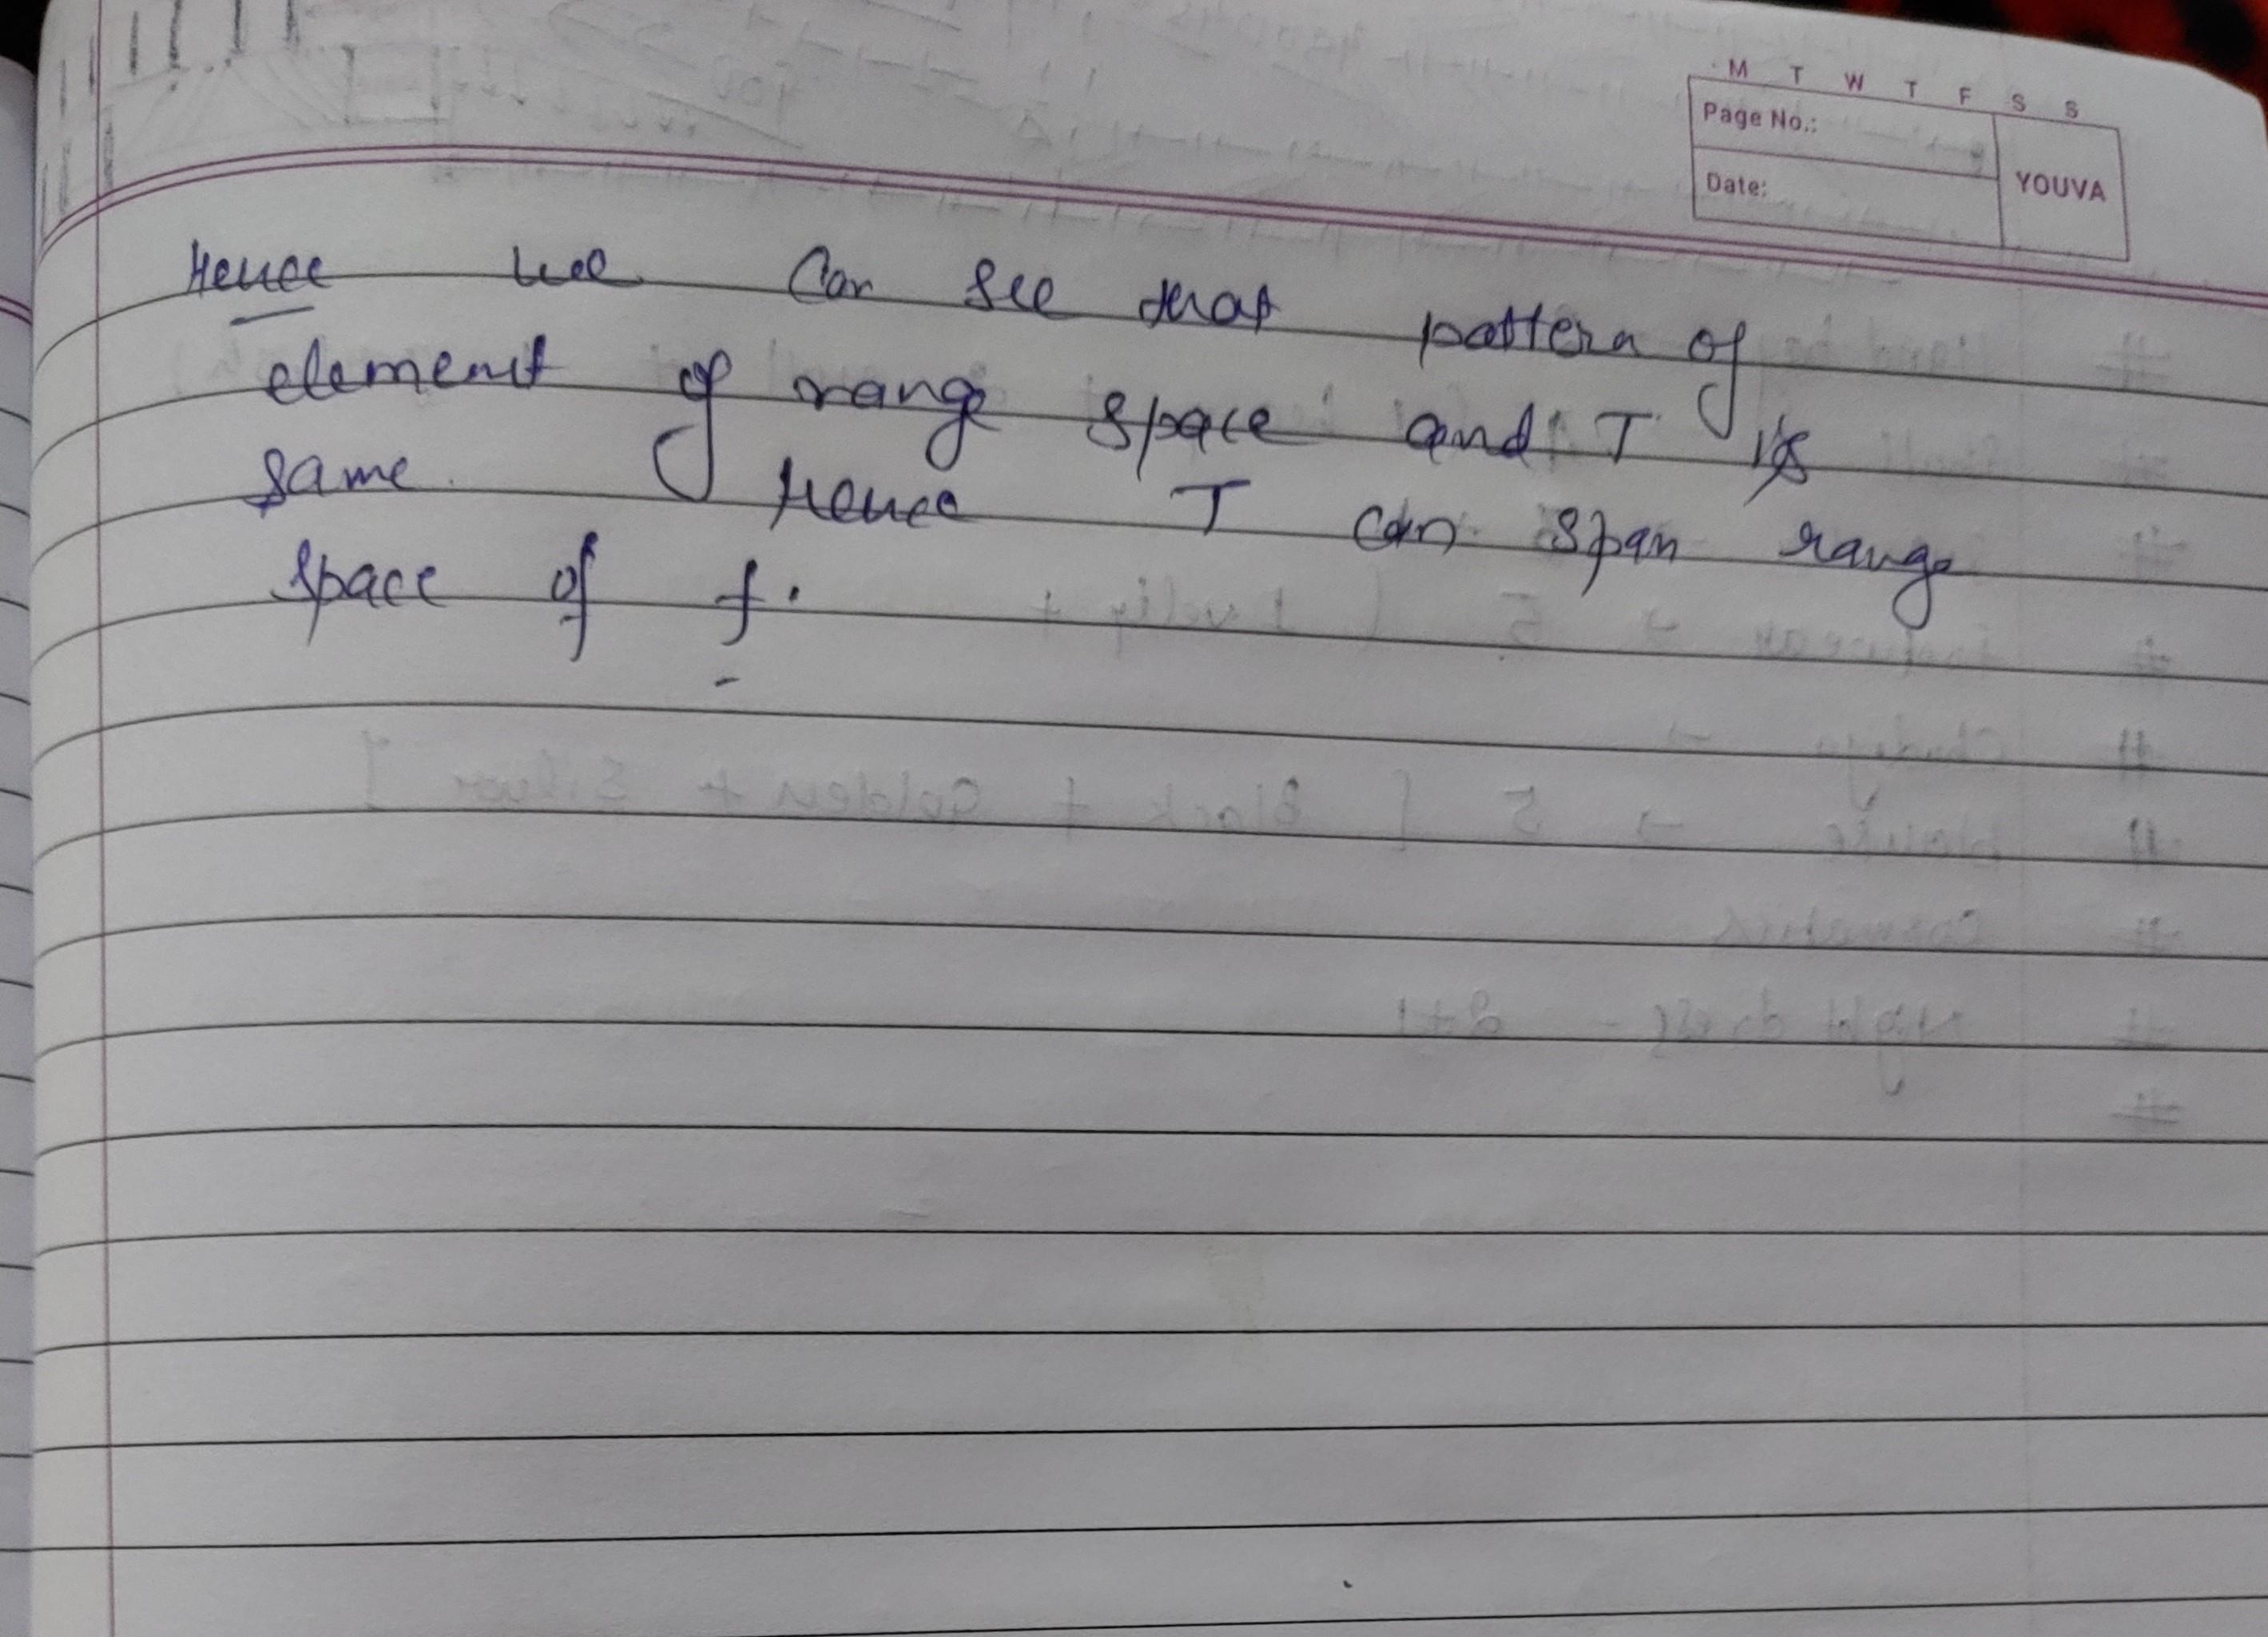 M T W T F S S
Page No.:
YOUVA
Date:
Hence we can see that pattern of
element of range space and T is
same. Hence T can span range
space of f.